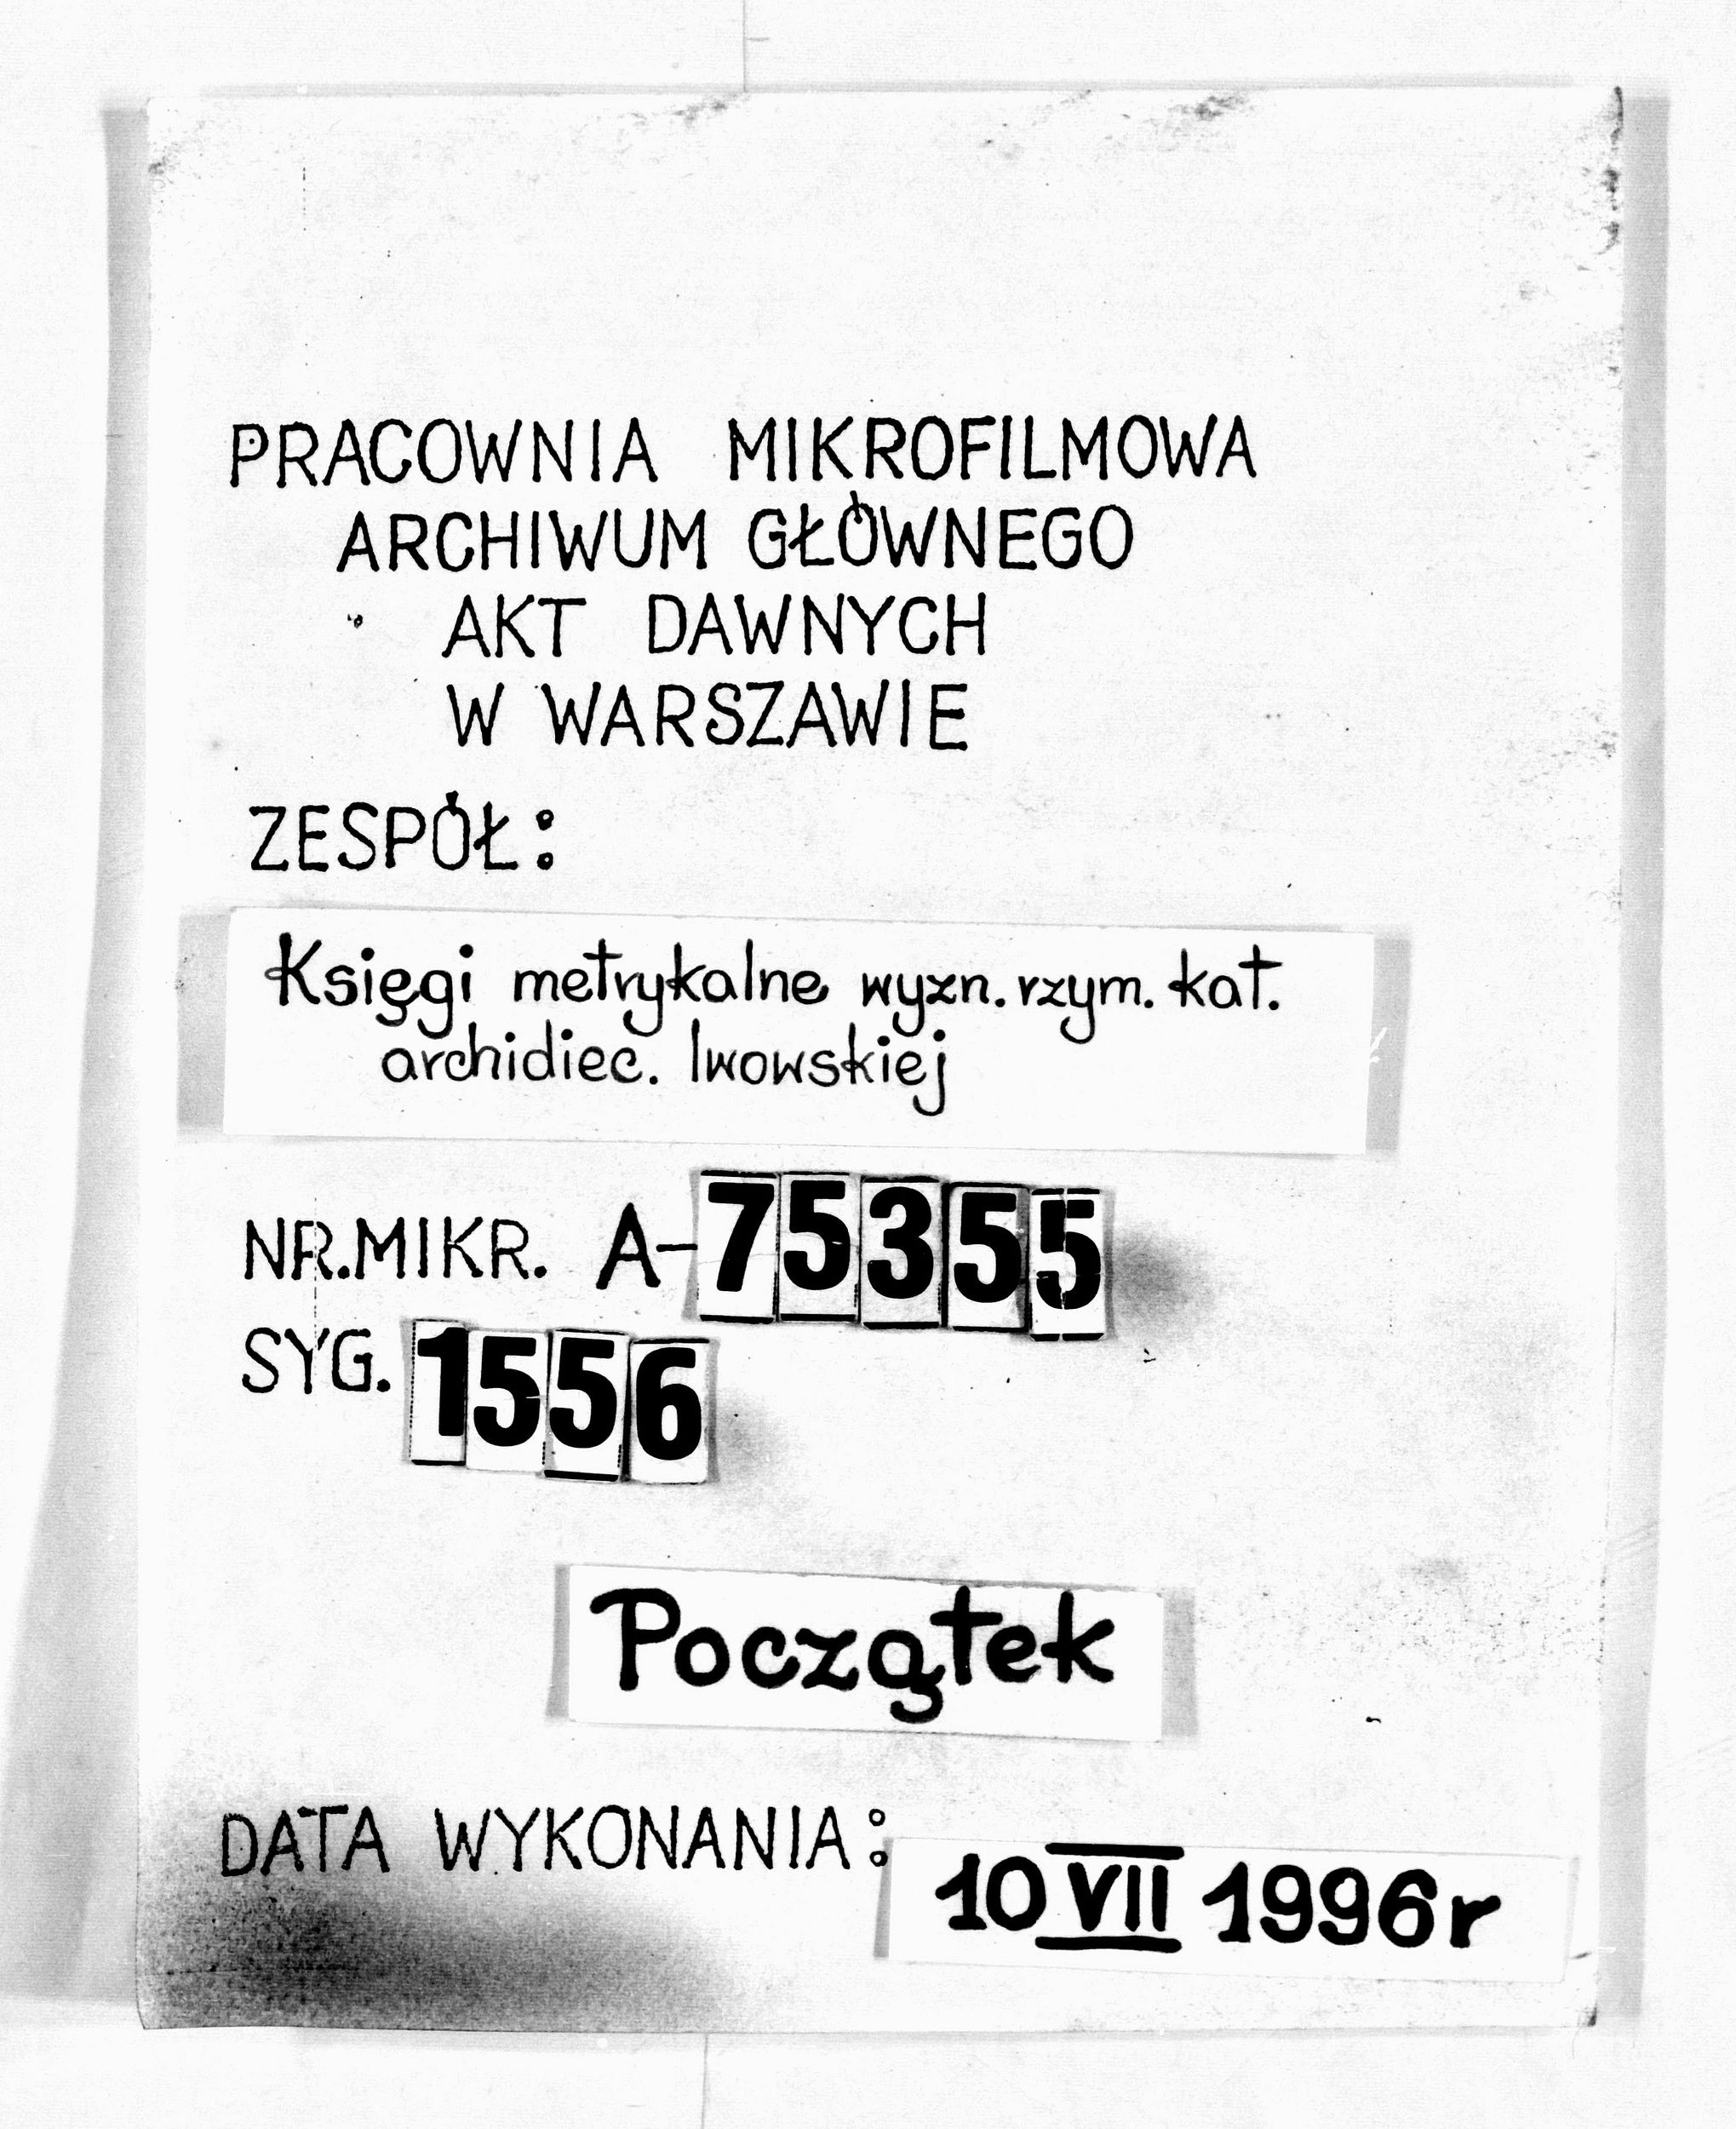 PRACOWNIA MIKROFILMOWA
ARCHIWUM GŁÓWNEGO
AKT DAWNYCH
W WARSZAWIE
ZESPÓŁ:
Księgi metrykalne wyzn. rzym. kat.
archidiec. lwowskiej
NR.MIKR. A-75355
SYG. 1556
Początek
DATA WYKONANIA: 10 VII 1996r